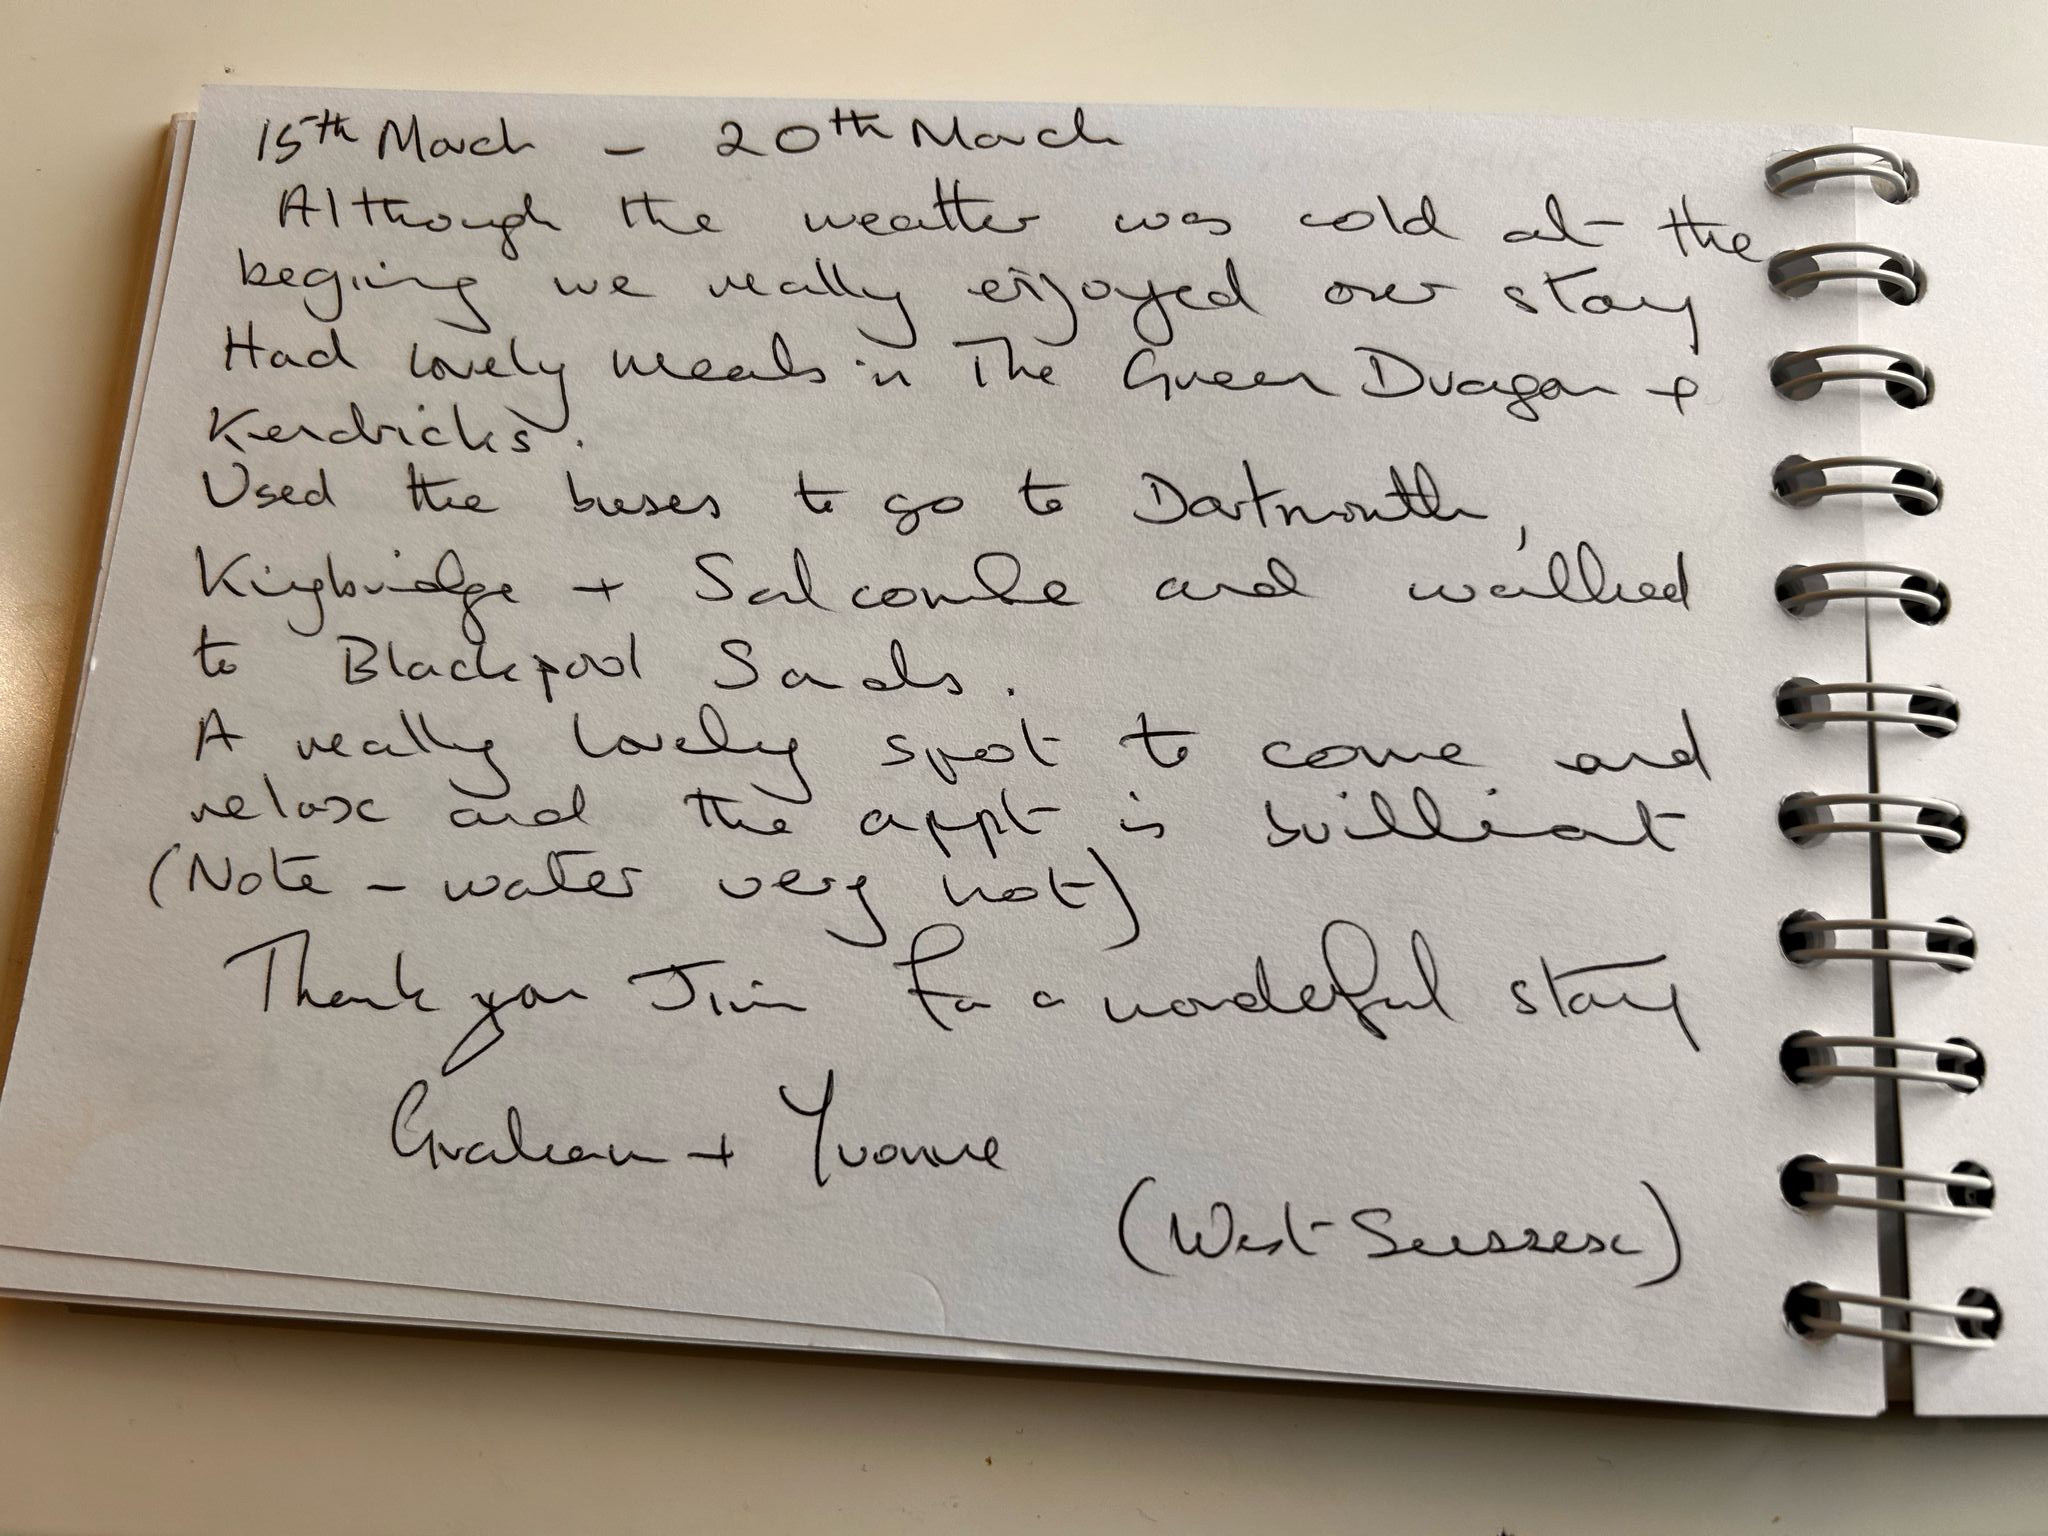 15th March - 20th March
Although the weather was cold at the
begining we really enjoyed our stay
Had lovely meals in The Green Dragon +
Kendricks.
Used the buses to go to Dartmouth,
Kingbridge + Salcombe and walked
to Blackpool Sands.
A really lovely spot to come and
relax and the appt is brilliant
(Note - water very hot)
Thank you Jim for a wonderful stay
Graham + Yvonne
(West Sussex)